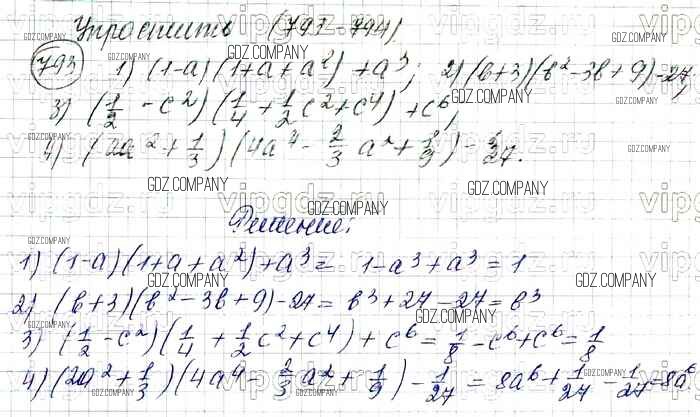 Упростить (793-794).
793 1) (1-a)(1+a+a²)+a³; 2) (b+3)(b²-3b+9)-27;
3) (1/2 - c²)(1/4 + 1/2 c² + c⁴) + c⁶;
4) (2a² + 1/3)(4a⁴ - 2/3 a² + 1/9) - 1/27.
Решение:
1) (1-a)(1+a+a²)+a³ = 1-a³+a³ = 1
2) (b+3)(b²-3b+9)-27 = b³+27-27 = b³
3) (1/2 - c²)(1/4 + 1/2 c² + c⁴) + c⁶ = 1/8 - c⁶ + c⁶ = 1/8
4) (2a² + 1/3)(4a⁴ - 2/3 a² + 1/9) - 1/27 = 8a⁶ + 1/27 - 1/27 = 8a⁶